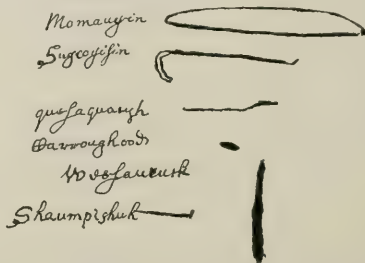 Momauguin
Sugcogisin
quosaquansh
Carroughood
Wesaucuck
Shaumpishuh